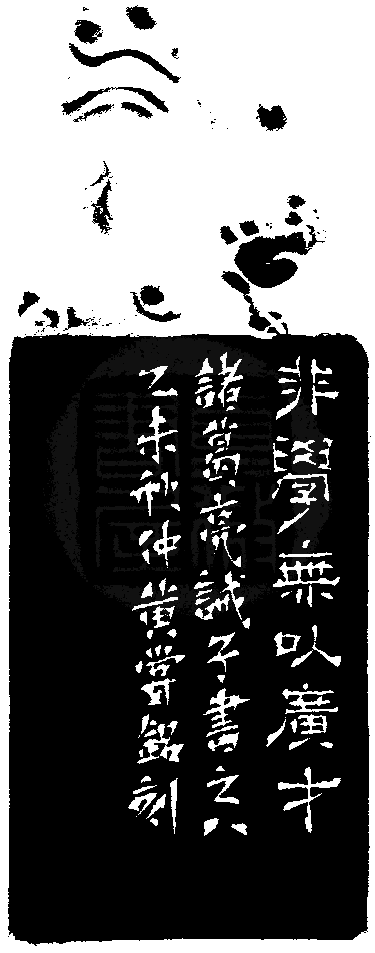 非學無以廣才
諸葛亮誡子書之八
乙未秋仲黃嘗銘刻